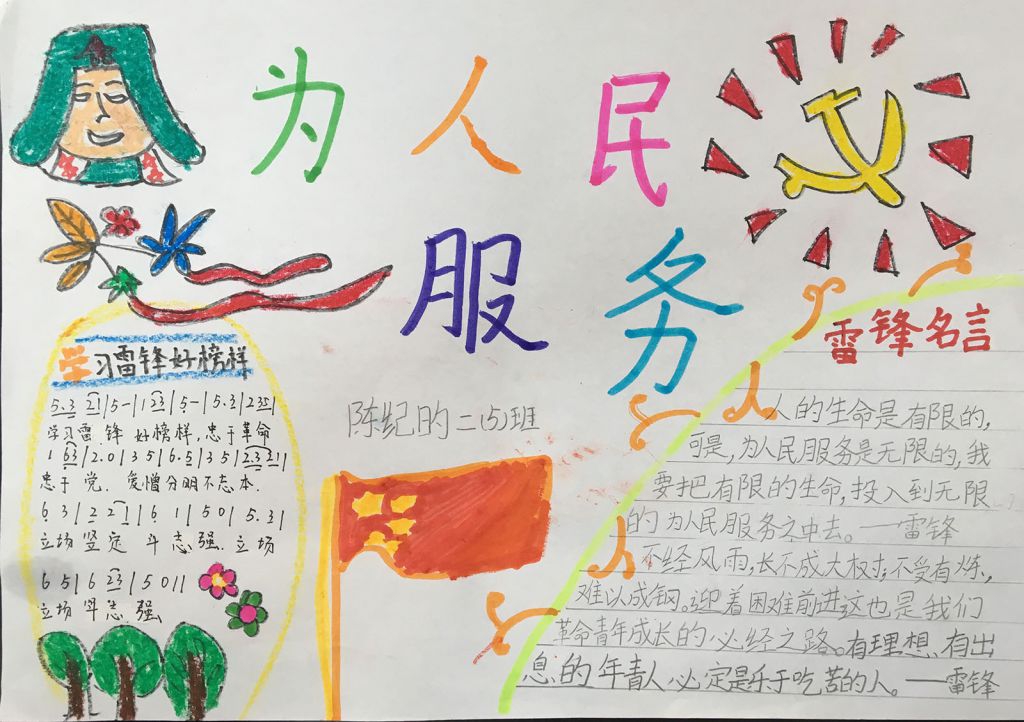 为人民
服务
学习雷锋好榜样
5.3 21|5-|123|5-|5.3|235|
学习雷锋好榜样,忠于革命
1 63|2.0|35|6.5|35|2.331|
忠于党.爱憎分明不忘本.
63|2 21|6 1|50|5.3|
立场坚定 斗志强.立场
65|6 23|5011
立场 斗志强.
陈纪昀二(5)班
雷锋名言
人的生命是有限的,
可是,为人民服务是无限的,我
要把有限的生命,投入到无限
的为人民服务之中去。——雷锋
不经风雨,长不成大树;不受百炼,
难以成钢。迎着困难前进这也是我们
革命青年成长的必经之路。有理想、有出
息的年青人必定是乐于吃苦的人。——雷锋